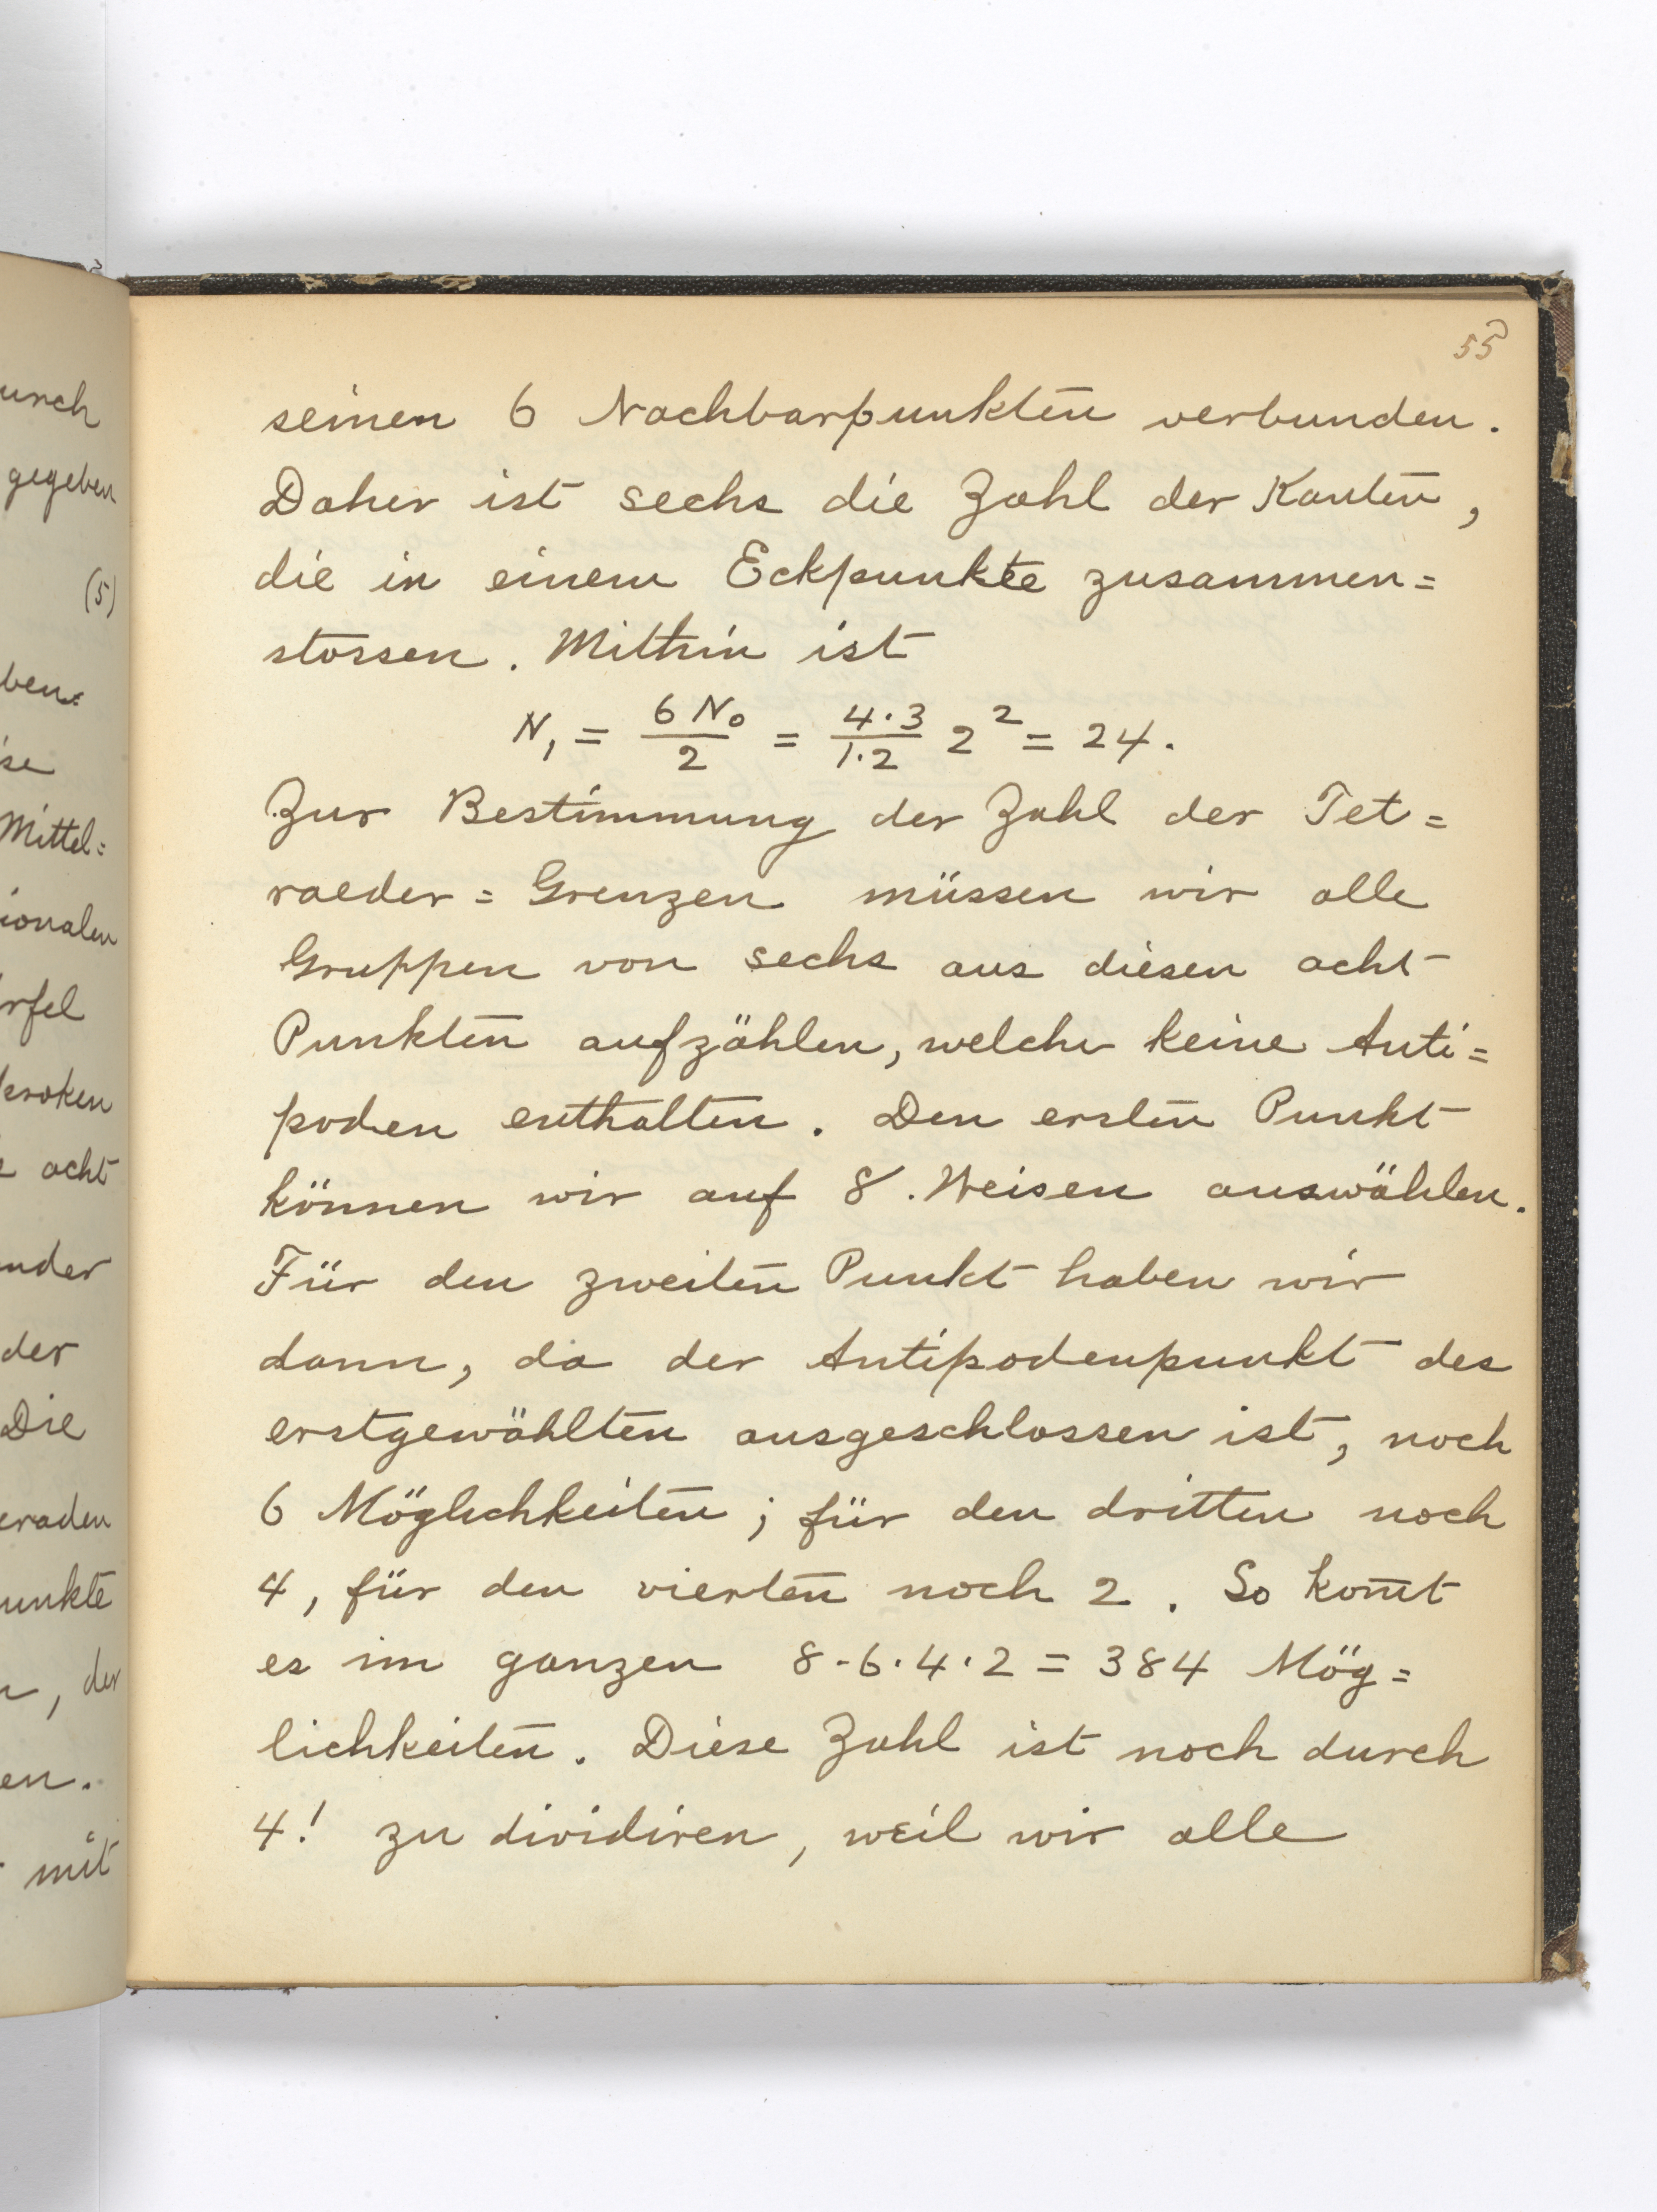 55
seinen 6 Nachbarpunkten verbunden.
Daher ist sechs die Zahl der Kanten,
die in einem Eckpunkte zusammen=
stossen. Mithin ist
N₁ = 6 N₀ / 2 = 4·3 / 1·2 2² = 24.
Zur Bestimmung der Zahl der Tet=
raeder=Grenzen müssen wir alle
Gruppen von sechs aus diesen acht
Punkten aufzählen, welche keine Anti=
poden enthalten. Den ersten Punkt
können wir auf 8. Weisen auswählen.
Für den zweiten Punkt haben wir
dann, da der Antipodenpunkt des
erstgewählten ausgeschlossen ist, noch
6 Möglichkeiten; für den dritten noch
4, für den vierten noch 2. So kom̄t
es im ganzen 8·6·4·2 = 384 Mög=
lichkeiten. Diese Zahl ist noch durch
4! zu dividiren, weil wir alle
urch
gegeben
(5)
ben=
ise
Mittel=
ionalen
rfel
kroken
acht
nder
der
Die
eraden
unkte
, der
en.
mit